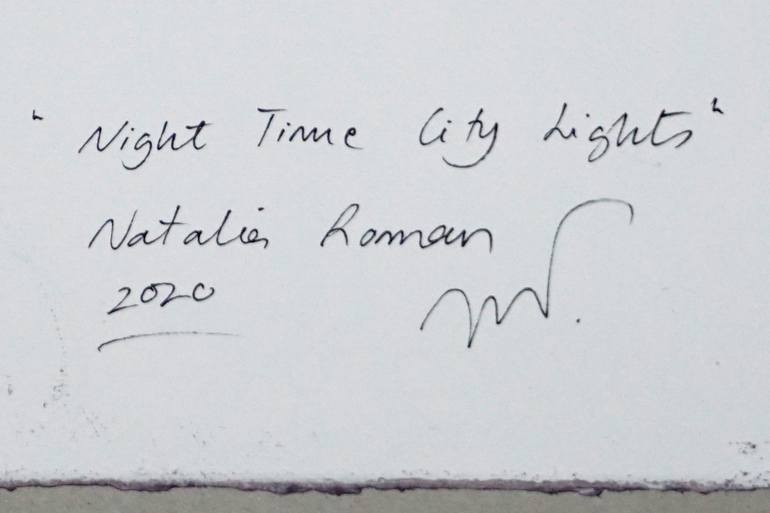 "Night Time City Lights"
Natalia Roman
2020